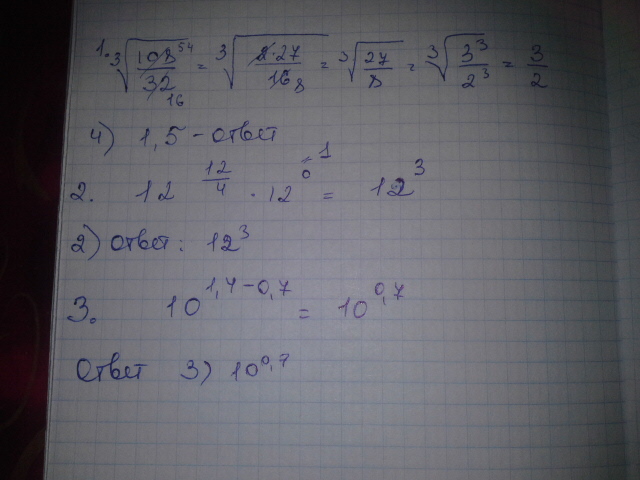 1. ∛(108/32) 54 16 = ∛(2·27/16) 8 = ∛(27/8) = ∛(3³/2³) = 3/2
4) 1,5 - ответ
2. 12^(12/4) · 12^0 = 1 = 12³
2) ответ: 12³
3. 10^(1,4-0,7) = 10^0,7
Ответ 3) 10^0,7